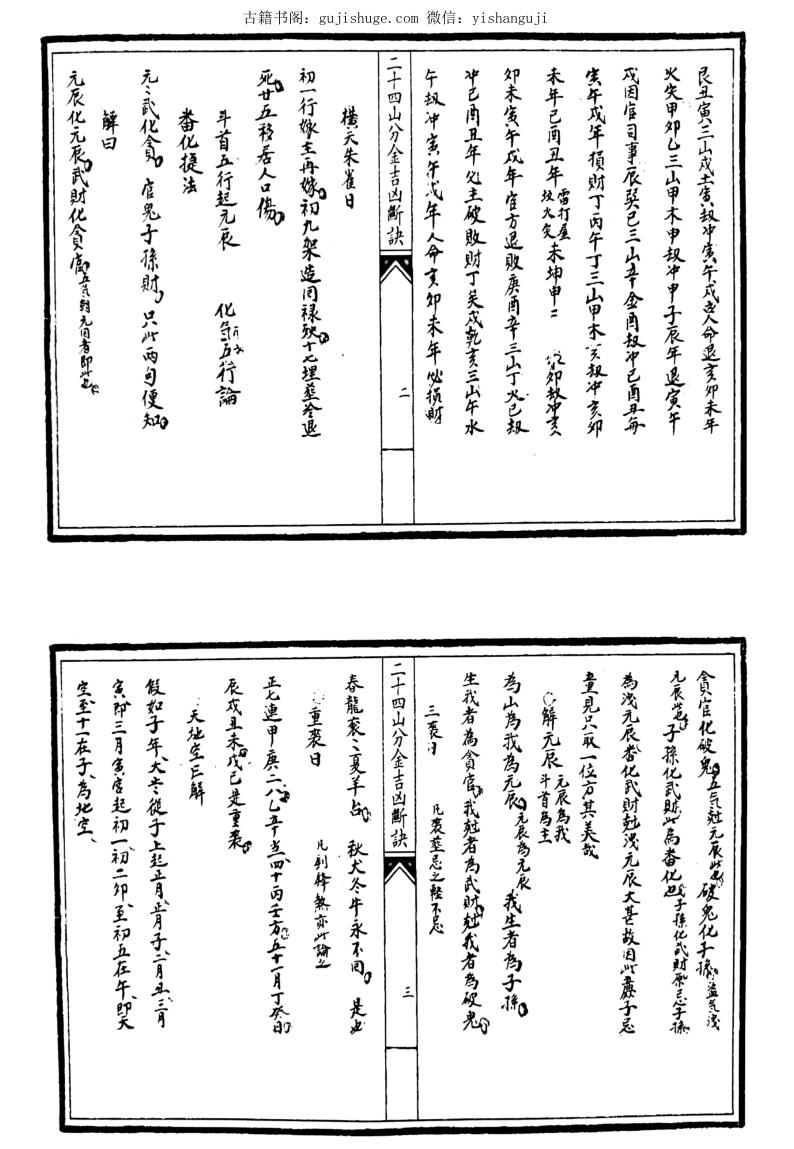 古籍书阁：gujishuge.com 微信：yishanguji
艮丑寅三山戌土寅劫冲寅午戌人命退亥卯未年
火失甲卯乙三山甲木申劫冲申子辰年退寅午
戌因官司事辰巽巳三山辛金酉劫冲巳酉丑年
寅午戌年損財丁丙午丁三山甲木亥劫冲亥卯
未年巳酉丑年雷打屋坟火災未坤申二 卯劫冲亥
卯未寅午戌年官方退敗庚酉辛三山丁火巳劫
冲巳酉丑年必主破敗財丁矣戌乾亥三山午水
午劫冲寅午戌年人命亥卯未年必損財
二十四山分金吉凶斷訣
二
橫天朱雀日
初一行嫁主再嫁初九架造同祿殃十七埋葬冷退
死廿五移居人口傷
斗首五行起元辰 化氣五行論
番化捷法
元元武化貪 官鬼子孫財 只此兩句便知
解曰
元辰化元辰武財化貪官五氣對元同者即此也
貪官化破鬼五氣尅元辰此也破鬼化子孫益氣洩
元辰此也子孫化武財此為番化也子孫化武財原忌子孫
為洩元辰番化武財尅洩元辰大甚故因此慶子忌
重見只取一位方其美哉
解元辰元辰為我斗首為主
為山為我為元辰元辰為元辰我生者為子孫
生我者為貪官我尅者為武財尅我者為破鬼
三喪日 凡喪葬忌之輕不忌
二十四山分金吉凶斷訣
三
春龍喪喪夏羊占 秋犬冬牛永不同 是也
重喪日 凡到鋒煞亦此論之
正七連甲庚二八乙辛当四十丙壬方五十一月丁癸日
辰戌丑未戊己是重喪
天地空亡解
假如子年大岺從子上起正月正月子二月丑三月
寅即三月寅宮起初一初二卯至初五在午即天
空至十一在子為地空